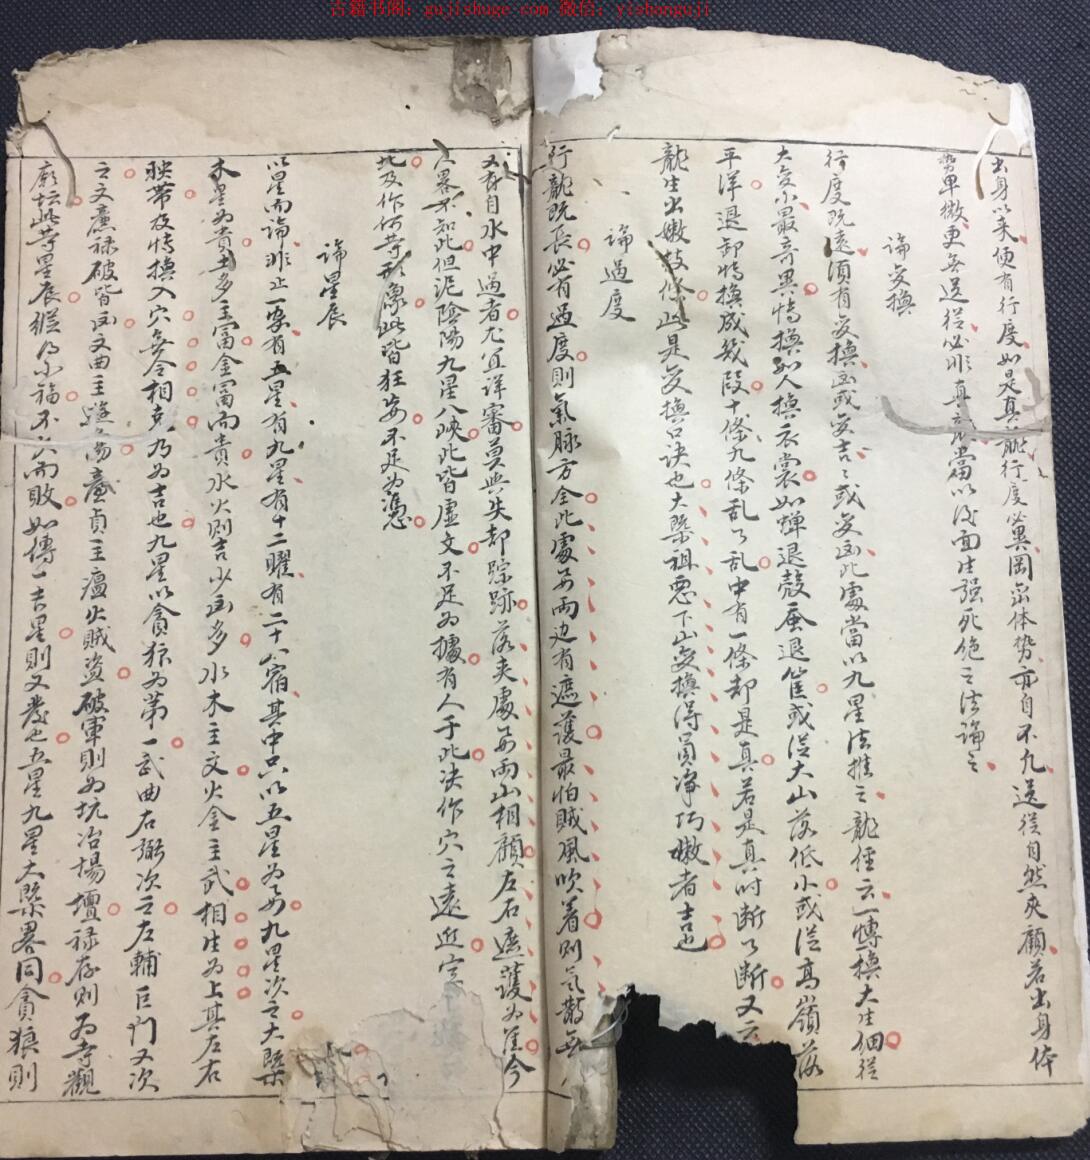 古籍书阁：gujishuge com 微信：yishenguji
出身以来便有行度如是真龍行度必異岡宗体势亦自不凡送從自然夾顧若出身体
势單微更無送從必非真龍當以後面生强死绝之法論之
論变換
行度既遠須有变換凶或变吉〻或变凶此處當以九星法推之龍經云一轉換大生細從
大变小最奇異情換如人換衣裳如蟬退殼蚕退筐或從大山落低小或從高嶺落
平洋退卸情換成幾段十條九條乱了乱中有一條却是真若是真时断了断又云
龍生出嫩枝條此是变換口訣也大槩祖惡下山变換得員净巧嫩者吉也
論過度
行龍既長必有過度則氣脉方全此處要兩边有遮護最怕賊風吹着則气散無
又有自水中過者尤宜詳審莫與失却踪跡落夾處要兩山相顧左右遮護为佳今
人畧不知此但泥陰陽九星八峽此皆虚文不足为據有人于此决作穴之遠近
此及作何等形像此皆狂妄不足为憑
論星辰
以星而論非止一家有五星有九星有十二曜有二十八宿其中只以五星为要九星次之大槩
木星为贵土多主富金富而贵水火則吉少凶多水木主文火金主武相生为上其左右
映帶及情換入穴無令相克乃为吉也九星以貪狼为第一武曲右弼次之左輔巨門又次
之文廉禄破皆凶文曲主遊蕩廉貞主瘟火賊盗破軍則为坑冶場壇禄存則为寺觀
廟坛此等星辰縱得小福不久而敗如傳一吉星則又發也五星九星大槩畧同貪狼則